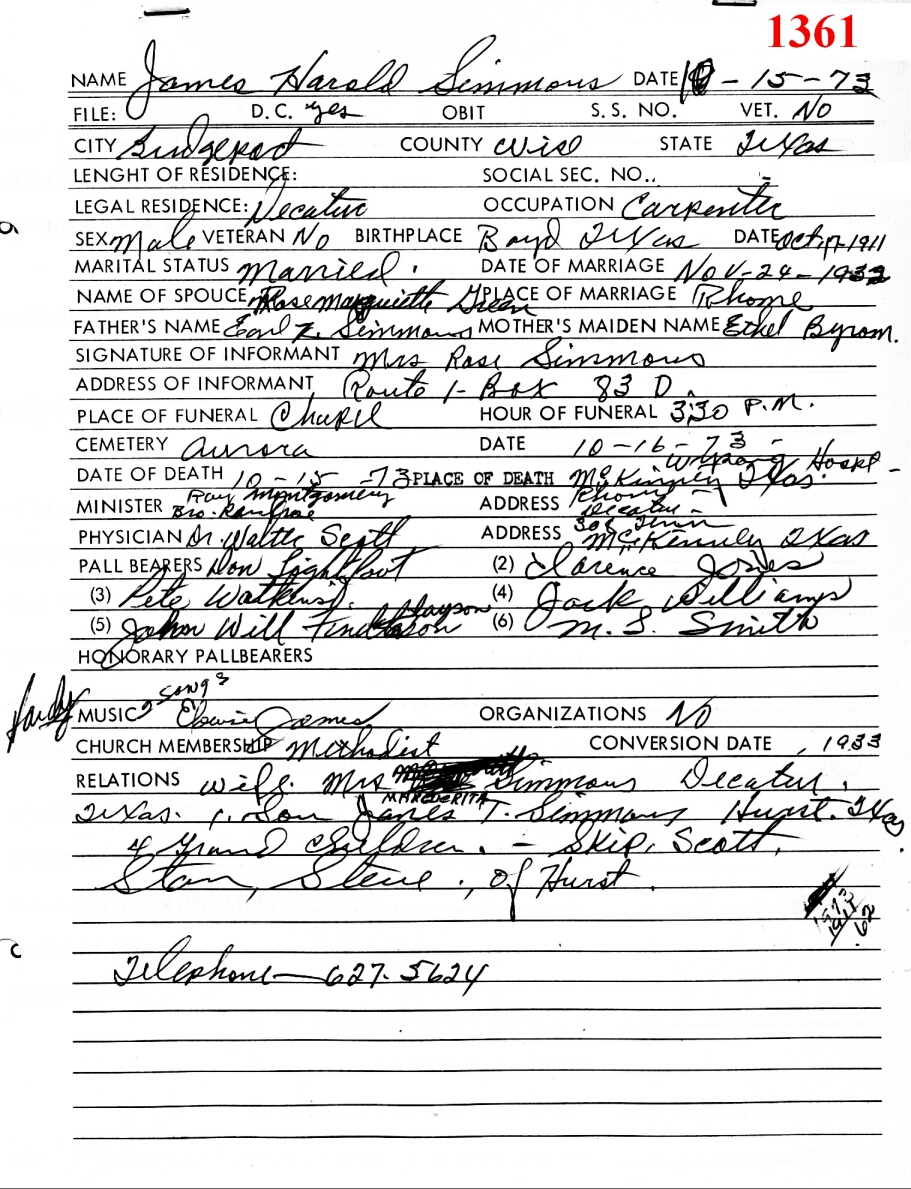 1361
NAME James Harold Simmons DATE 10-15-73
FILE: D.C. yes OBIT S.S. NO. VET. No
CITY Bridgeport COUNTY Wise STATE Texas
LENGHT OF RESIDENCE: SOCIAL SEC. NO..
LEGAL RESIDENCE: Decatur OCCUPATION Carpenter
SEX Male VETERAN No BIRTHPLACE Boyd Texas DATE Oct, 17-1911
MARITAL STATUS Married. DATE OF MARRIAGE Nov-24-1932
NAME OF SPOUCE Rose Marquiette Green PLACE OF MARRIAGE Rhome
FATHER'S NAME Earl Z. Simmons MOTHER'S MAIDEN NAME Ethel Byrom.
SIGNATURE OF INFORMANT Mrs Rose Simmons
ADDRESS OF INFORMANT Route 1- Box 83 D.
PLACE OF FUNERAL Chapel HOUR OF FUNERAL 3:30 P.M.
CEMETERY Aurora DATE 10-16-73-
DATE OF DEATH 10-15-73 PLACE OF DEATH McKinney Texas. Wysong Hospt-
MINISTER Ray Montgomery ADDRESS Rhome
Bro. Renfroe Decatur-
PHYSICIAN Dr. Walter Scott ADDRESS McKinney Texas
PALL BEARERS Don Lightfoot (2) Clarence Jones
(3) Pete Watkins. (4) Jack Williams
(5) John Will (6) M.S. Smith
HONORARY PALLBEARERS
2 songs
MUSIC James ORGANIZATIONS No
CHURCH MEMBERSHIP Methodist CONVERSION DATE , 1933
RELATIONS wife. Mrs Simmons Decatur.
MARGUERITA
Texas. 1. Son James T. Simmons Hurst. Texas.
4 Grand Children. - Skip, Scott,
Stan, Steve., of Hurst.
1973
1911
62
Telephone- 627-5624